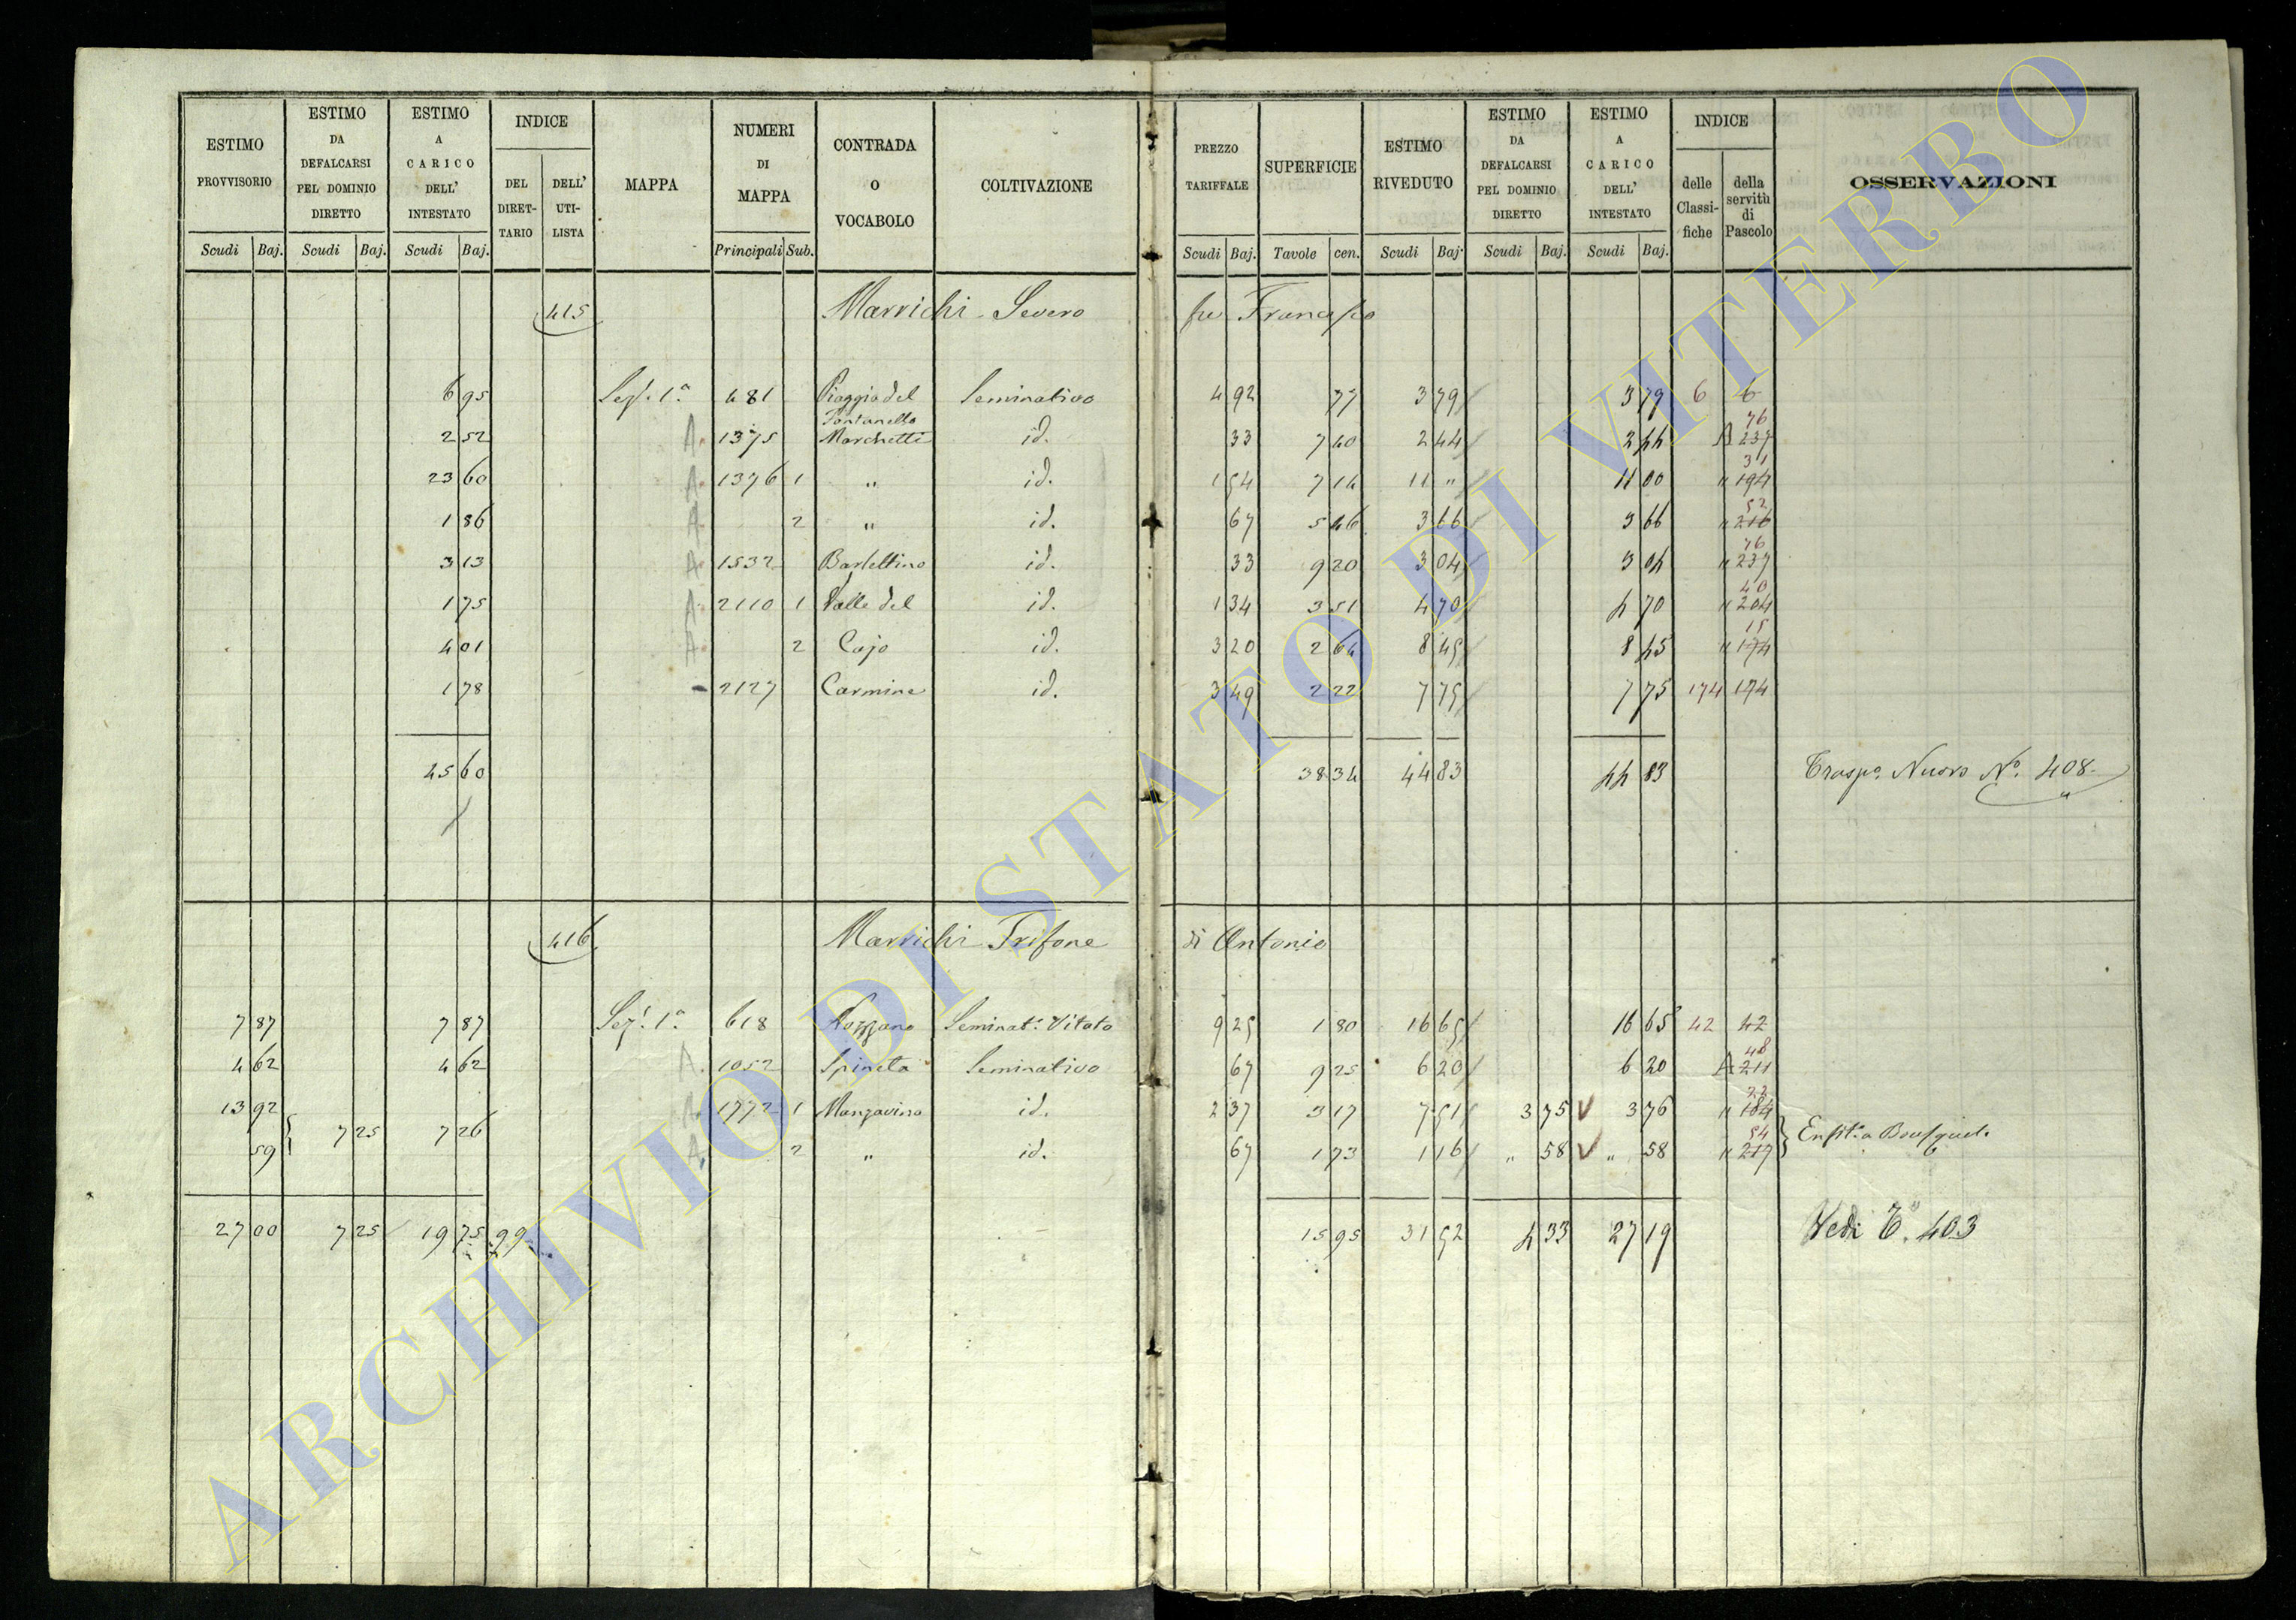 ESTIMO PROVVISORIO Scudi Baj. | ESTIMO DA DEFALCARSI PEL DOMINIO DIRETTO Scudi Baj. | ESTIMO A CARICO DELL' INTESTATO Scudi Baj. | INDICE DEL DIRET-TARIO | DELL' UTI-LISTA | MAPPA | NUMERI DI MAPPA Principali Sub. | CONTRADA O VOCABOLO | COLTIVAZIONE | PREZZO TARIFFALE Scudi Baj. | SUPERFICIE Tavole cen. | ESTIMO RIVEDUTO Scudi Baj. | ESTIMO DA DEFALCARSI PEL DOMINIO DIRETTO Scudi Baj. | ESTIMO A CARICO DELL' INTESTATO Scudi Baj. | INDICE delle Classi-fiche | della servitù di Pascolo | OSSERVAZIONI
415 Marrichi Severo fu Francesco
6 95 Sez. 1a 481 Piaggia del Fontanello Seminativo 4 92 77 3 79 3 79 6 6
2 52 A. 1375 Marchetti id. 33 7 40 2 44 2 44 A 237 76
23 60 A. 1376 1 " id. 1 54 7 14 11 " 11 00 " 194 31
1 86 A. 2 " id. 67 5 46 3 66 3 66 " 216 52
3 13 A. 1532 Barlettino id. 33 9 20 3 04 3 04 " 237 76
1 75 A. 2110 1 Valle del id. 1 34 3 51 4 70 4 70 " 204 40
4 01 A. 2 Cajo id. 3 20 2 64 8 45 8 45 " 174 15
1 78 - 2127 Carmine id. 3 49 2 22 7 75 7 75 174 174
45 60 38 34 44 83 44 83 Traspo. Nuovo No. 408.
416 Marrichi Trifone di Antonio
7 87 7 87 Sez. 1a 618 Seminat. Vitato 9 25 1 80 16 65 16 65 42 42
4 62 4 62 A. 1052 Spineta Seminativo 67 9 25 6 20 6 20 A 211 48
13 92 A. 1772 1 Manzavino id. 2 37 3 17 7 51 3 75 V 3 76 " 184 23
59 7 25 7 26 A. 2 " id. 67 1 73 1 16 " 58 V " 58 " 217 54 Enfit. a
27 00 7 25 19 75 99 15 95 31 52 4 33 27 19 Vedi T. 403
ARCHIVIO DI STATO DI VITERBO